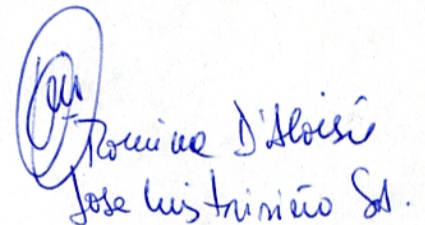 Romina D'Aloisi
Jose Luis Trisiño SA.